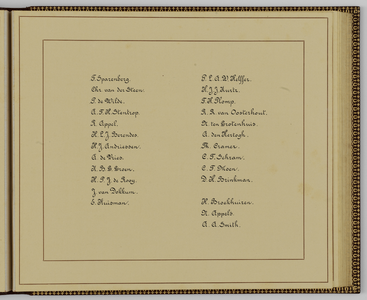 T. Sparenberg.
Chr. van der Steen.
P. de Wilde.
A. F. H. Stentrop.
K. Appel.
H. L. J. Berendes.
H. J. Andriessen.
A. de Vries.
A. B. C. Croon.
H. P. J. de Rooy.
J. van Dokkum.
E. Huisman.
P. L. A. W. Helffer.
H. J. J. Kurtz.
T. H. Plomp.
R. R. van Oosterhout.
N. ten Grotenhuis.
A. den Hertogh.
Th. Cramer.
C. F. Schram.
C. F. Ploen.
D. H. Brinkman.
H. Broekhuizen.
N. Appels.
A. A. Smith.